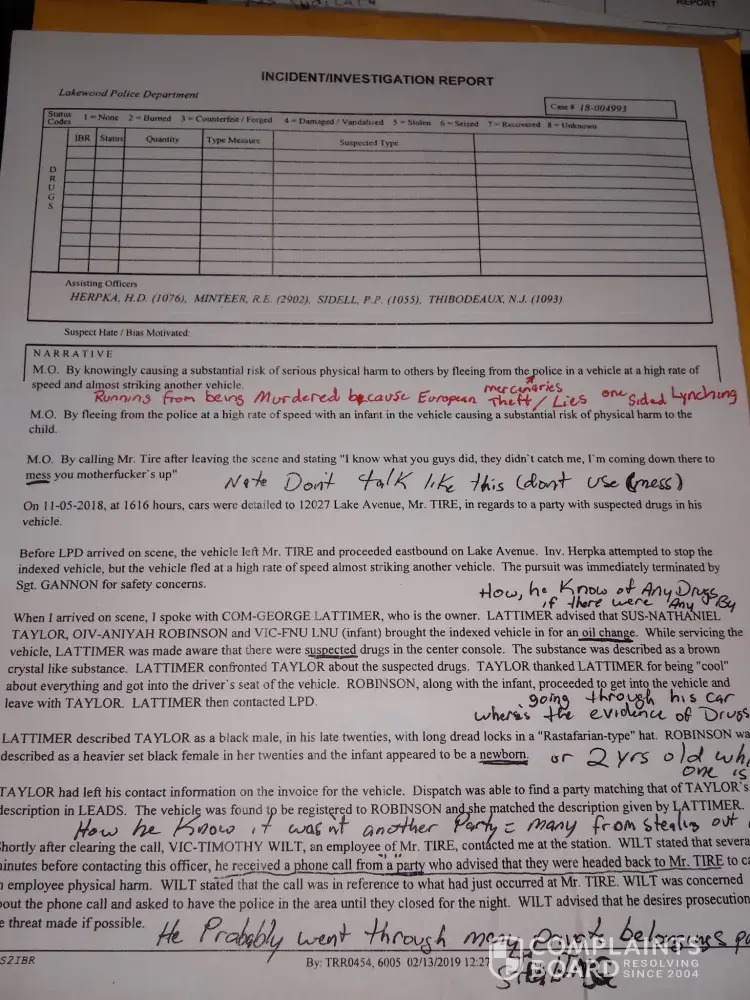 REPORT
INCIDENT/INVESTIGATION REPORT
Lakewood Police Department
Case # 18-004993
Status Codes 1 = None 2 = Burned 3 = Counterfeit / Forged 4 = Damaged / Vandalized 5 = Stolen 6 = Seized 7 = Recovered 8 = Unknown
IBR Status Quantity Type Measure Suspected Type
DRUGS
Assisting Officers
HERPKA, H.D. (1076), MINTEER, R.E. (2902), SIDELL, P.P. (1055), THIBODEAUX, N.J. (1093)
Suspect Hate / Bias Motivated:
NARRATIVE
M.O. By knowingly causing a substantial risk of serious physical harm to others by fleeing from the police in a vehicle at a high rate of
speed and almost striking another vehicle.
mercenaries
Running from being Murdered because European Theft / Lies one sided Lynching
M.O. By fleeing from the police at a high rate of speed with an infant in the vehicle causing a substantial risk of physical harm to the
child.
M.O. By calling Mr. Tire after leaving the scene and stating "I know what you guys did, they didn't catch me, I'm coming down there to
mess you motherfucker's up"
Note Don't talk like this (dont use (mess)
On 11-05-2018, at 1616 hours, cars were detailed to 12027 Lake Avenue, Mr. TIRE, in regards to a party with suspected drugs in his
vehicle.
Before LPD arrived on scene, the vehicle left Mr. TIRE and proceeded eastbound on Lake Avenue. Inv. Herpka attempted to stop the
indexed vehicle, but the vehicle fled at a high rate of speed almost striking another vehicle. The pursuit was immediately terminated by
Sgt. GANNON for safety concerns.
How, he Know of Any Drugs
if there were Any By
When I arrived on scene, I spoke with COM-GEORGE LATTIMER, who is the owner. LATTIMER advised that SUS-NATHANIEL
TAYLOR, OIV-ANIYAH ROBINSON and VIC-FNU LNU (infant) brought the indexed vehicle in for an oil change. While servicing the
vehicle, LATTIMER was made aware that there were suspected drugs in the center console. The substance was described as a brown
crystal like substance. LATTIMER confronted TAYLOR about the suspected drugs. TAYLOR thanked LATTIMER for being "cool"
about everything and got into the driver's seat of the vehicle. ROBINSON, along with the infant, proceeded to get into the vehicle and
leave with TAYLOR. LATTIMER then contacted LPD.
going through his car
wheres the evidence of Drugs
LATTIMER described TAYLOR as a black male, in his late twenties, with long dread locks in a "Rastafarian-type" hat. ROBINSON wa
described as a heavier set black female in her twenties and the infant appeared to be a newborn.
or 2 yrs old wh
one is
TAYLOR had left his contact information on the invoice for the vehicle. Dispatch was able to find a party matching that of TAYLOR's
description in LEADS. The vehicle was found to be registered to ROBINSON and she matched the description given by LATTIMER.
How he Know it wasnt another Party = many from stealing out
Shortly after clearing the call, VIC-TIMOTHY WILT, an employee of Mr. TIRE, contacted me at the station. WILT stated that severa
minutes before contacting this officer, he received a phone call from "a" party who advised that they were headed back to Mr. TIRE to ca
n employee physical harm. WILT stated that the call was in reference to what had just occurred at Mr. TIRE. WILT was concerned
bout the phone call and asked to have the police in the area until they closed for the night. WILT advised that he desires prosecution
e threat made if possible.
He Probably went through many belongings
S2IBR
By: TRR0454, 6005 02/13/2019 12:27
COMPLAINTS
BOARD RESOLVING
SINCE 2004